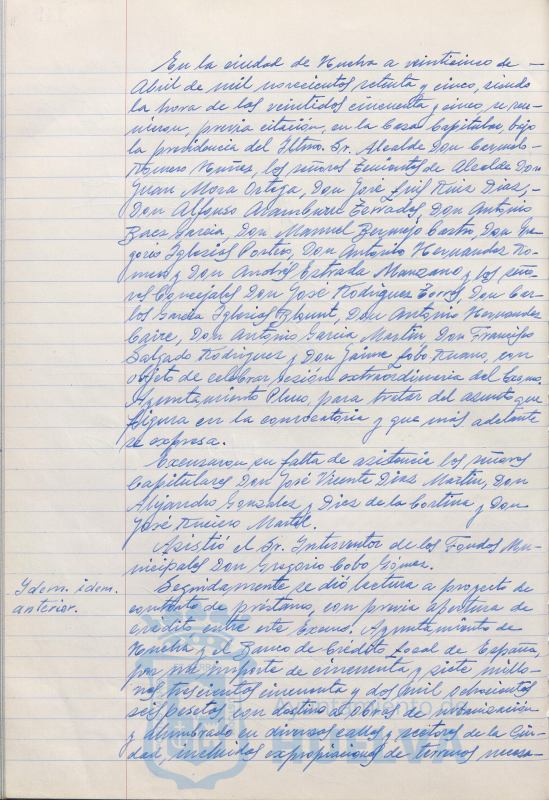 En la ciudad de Huelva a veinticinco de -
Abril de mil novecientos setenta y cinco, siendo
la hora de las veintidos cincuenta y cinco, se reu-
nieron, previa citación, en la Casa Capitular, bajo
la presidencia del Iltmo. Sr. Alcalde Don Carmelo
Romero Núñez, los señores Tenientes de Alcalde Don
Juan Mora Ortega, Don José Luis Ruiz Diaz, -
Don Alfonso Aramburu Terrades, Don Antonio
Baez Garcia, Don Manuel Bermejo Castro, Don Gre-
gorio Iglesias Portero, Don Antonio Hernandez Ro-
mero y Don Andrés Estrada Manzano y los seño-
res Concejales Don José Rodriguez Torres, Don Car-
los Garcia Iglesias Blount, Don Antonio Hernandez
Caire, Don Antonio Garcia Martin, Don Francisco
Salgado Rodriguez y Don Jaime Lobo Ruano, con
objeto de celebrar sesión extraordinaria del Excmo.
Ayuntamiento Pleno, para tratar del asunto que
figura en la convocatoria y que más adelante
se expresa.
Excusaron su falta de asistencia los señores
Capitulares Don José Vicente Diaz Martin, Don
Alejandro Gonzalez y Diez de la Cortina y Don
José Riciero Martel.
Asistió el Sr. Interventor de los Fondos Mu-
nicipales Don Gregorio Cobo Gómez.
Idem. idem. anterior.
Seguidamente se dió lectura a proyecto de
contrato de préstamo, con previa apertura de
credito entre este Excmo. Ayuntamiento de
Huelva y el Banco de Crédito Local de España,
por un importe de cincuenta y siete millo-
nes trescientas cincuenta y dos mil ochocientas
seis pesetas, con destino a obras de urbanización
y alumbrado en diversas calles y sectores de la Ciu-
dad, incluidas expropiaciones de terrenos necesa-